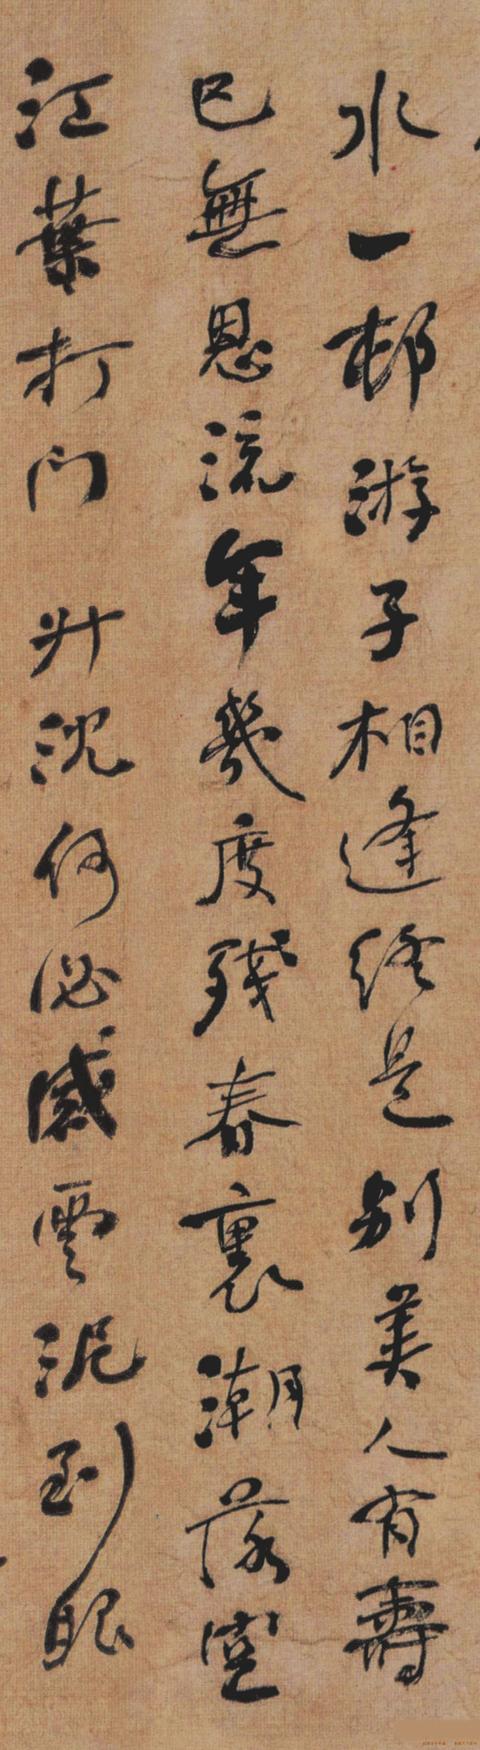 水一邨游子相逢終是别美人有壽
已無恩流年幾度殘春裏潮落空
江葉打門 升沈何必感雲泥到眼